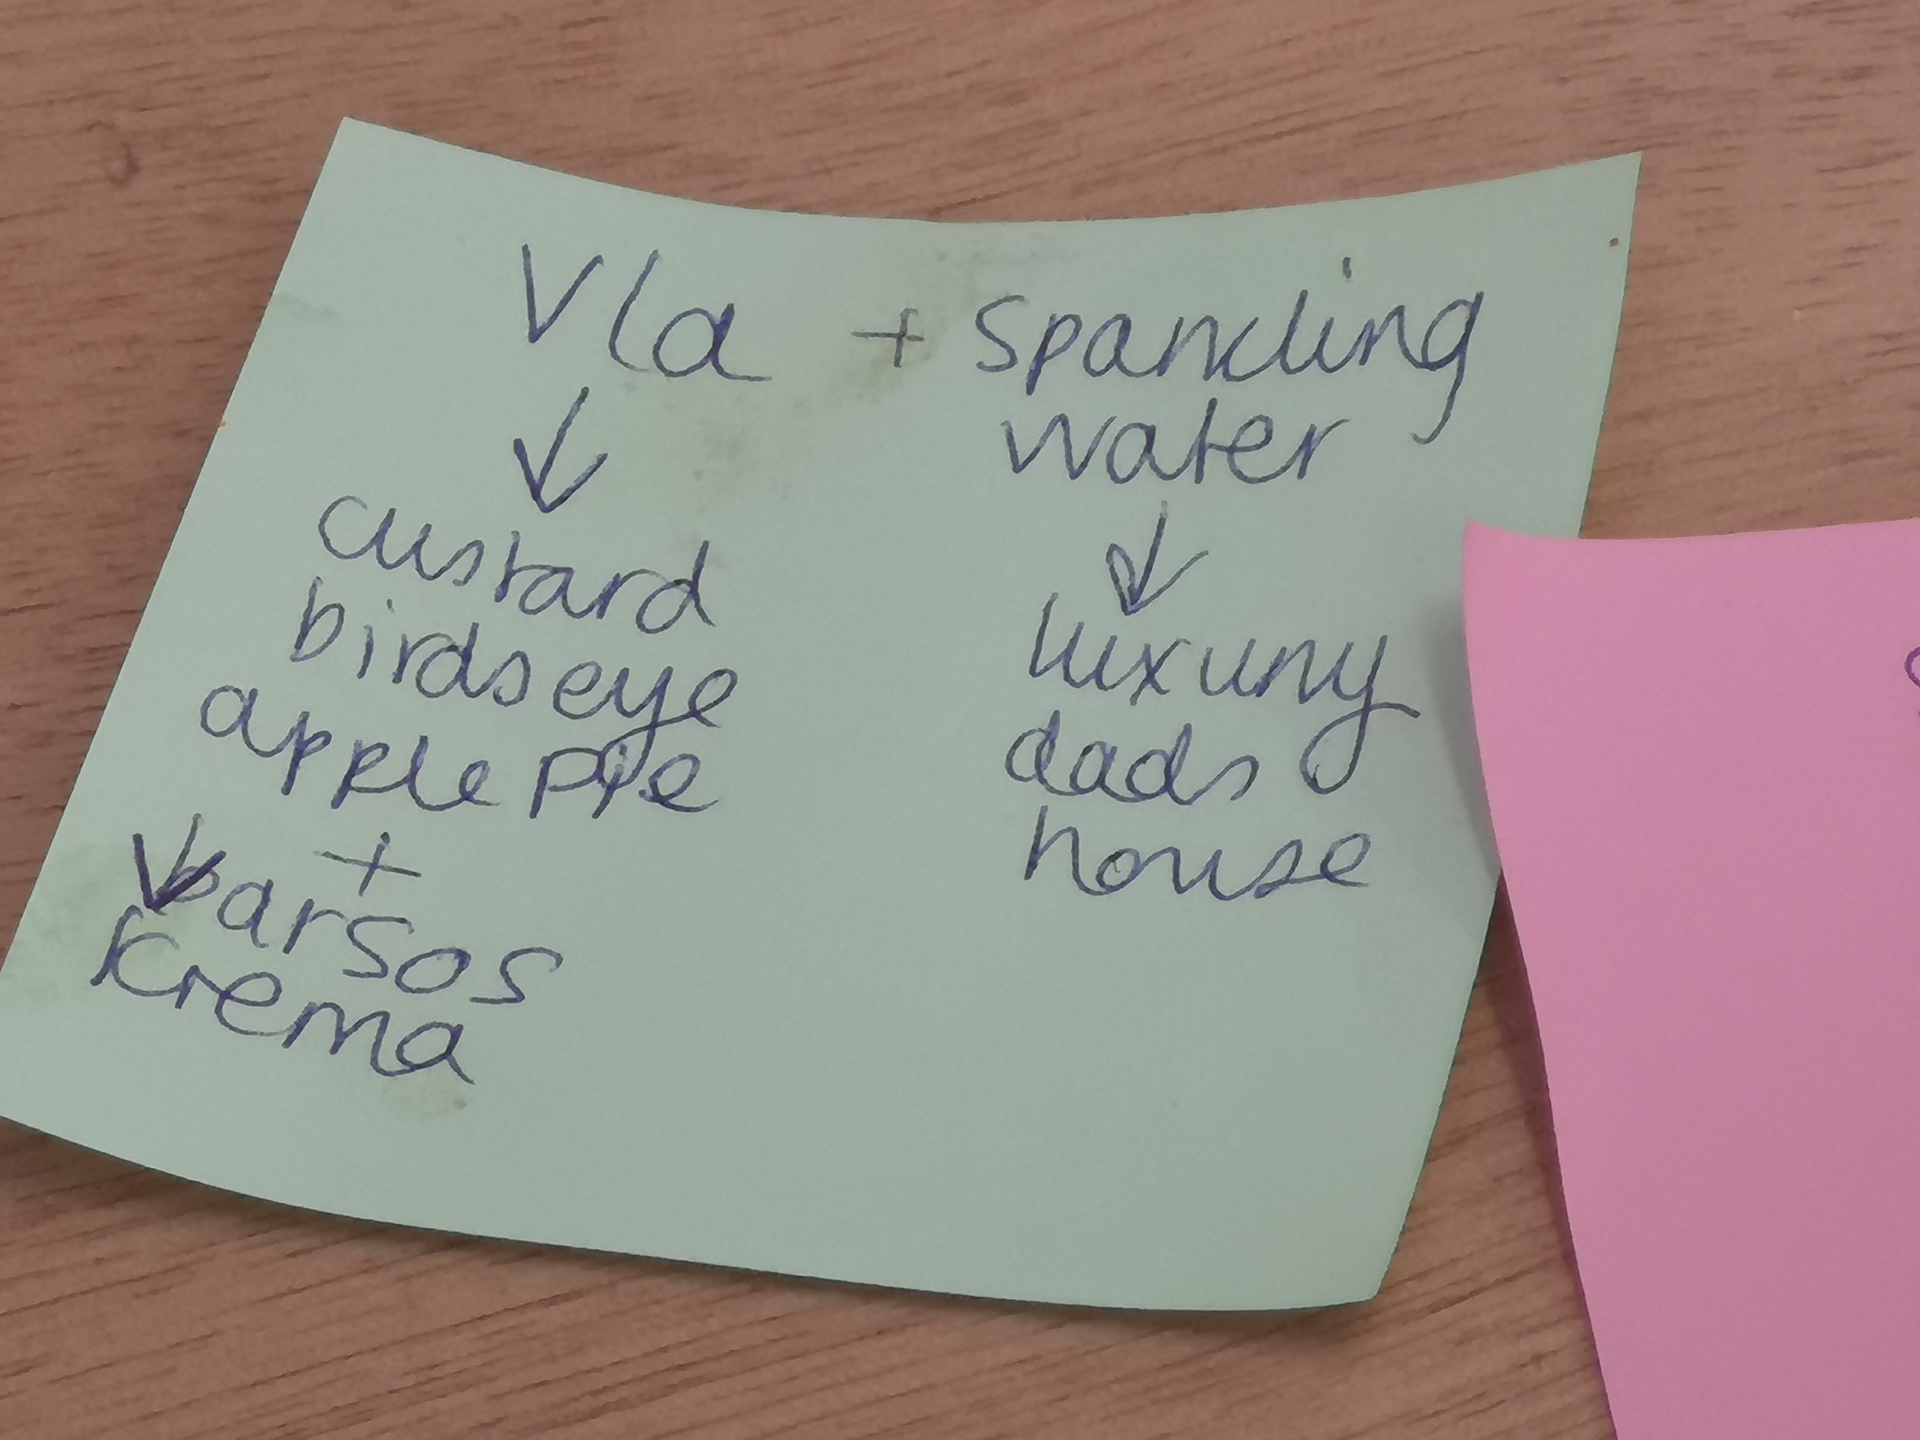 Vla + sparcling
water
↓ ↓
custard
birdseye
apple pie
+
↓ barsos
krema
luxury
dads
house